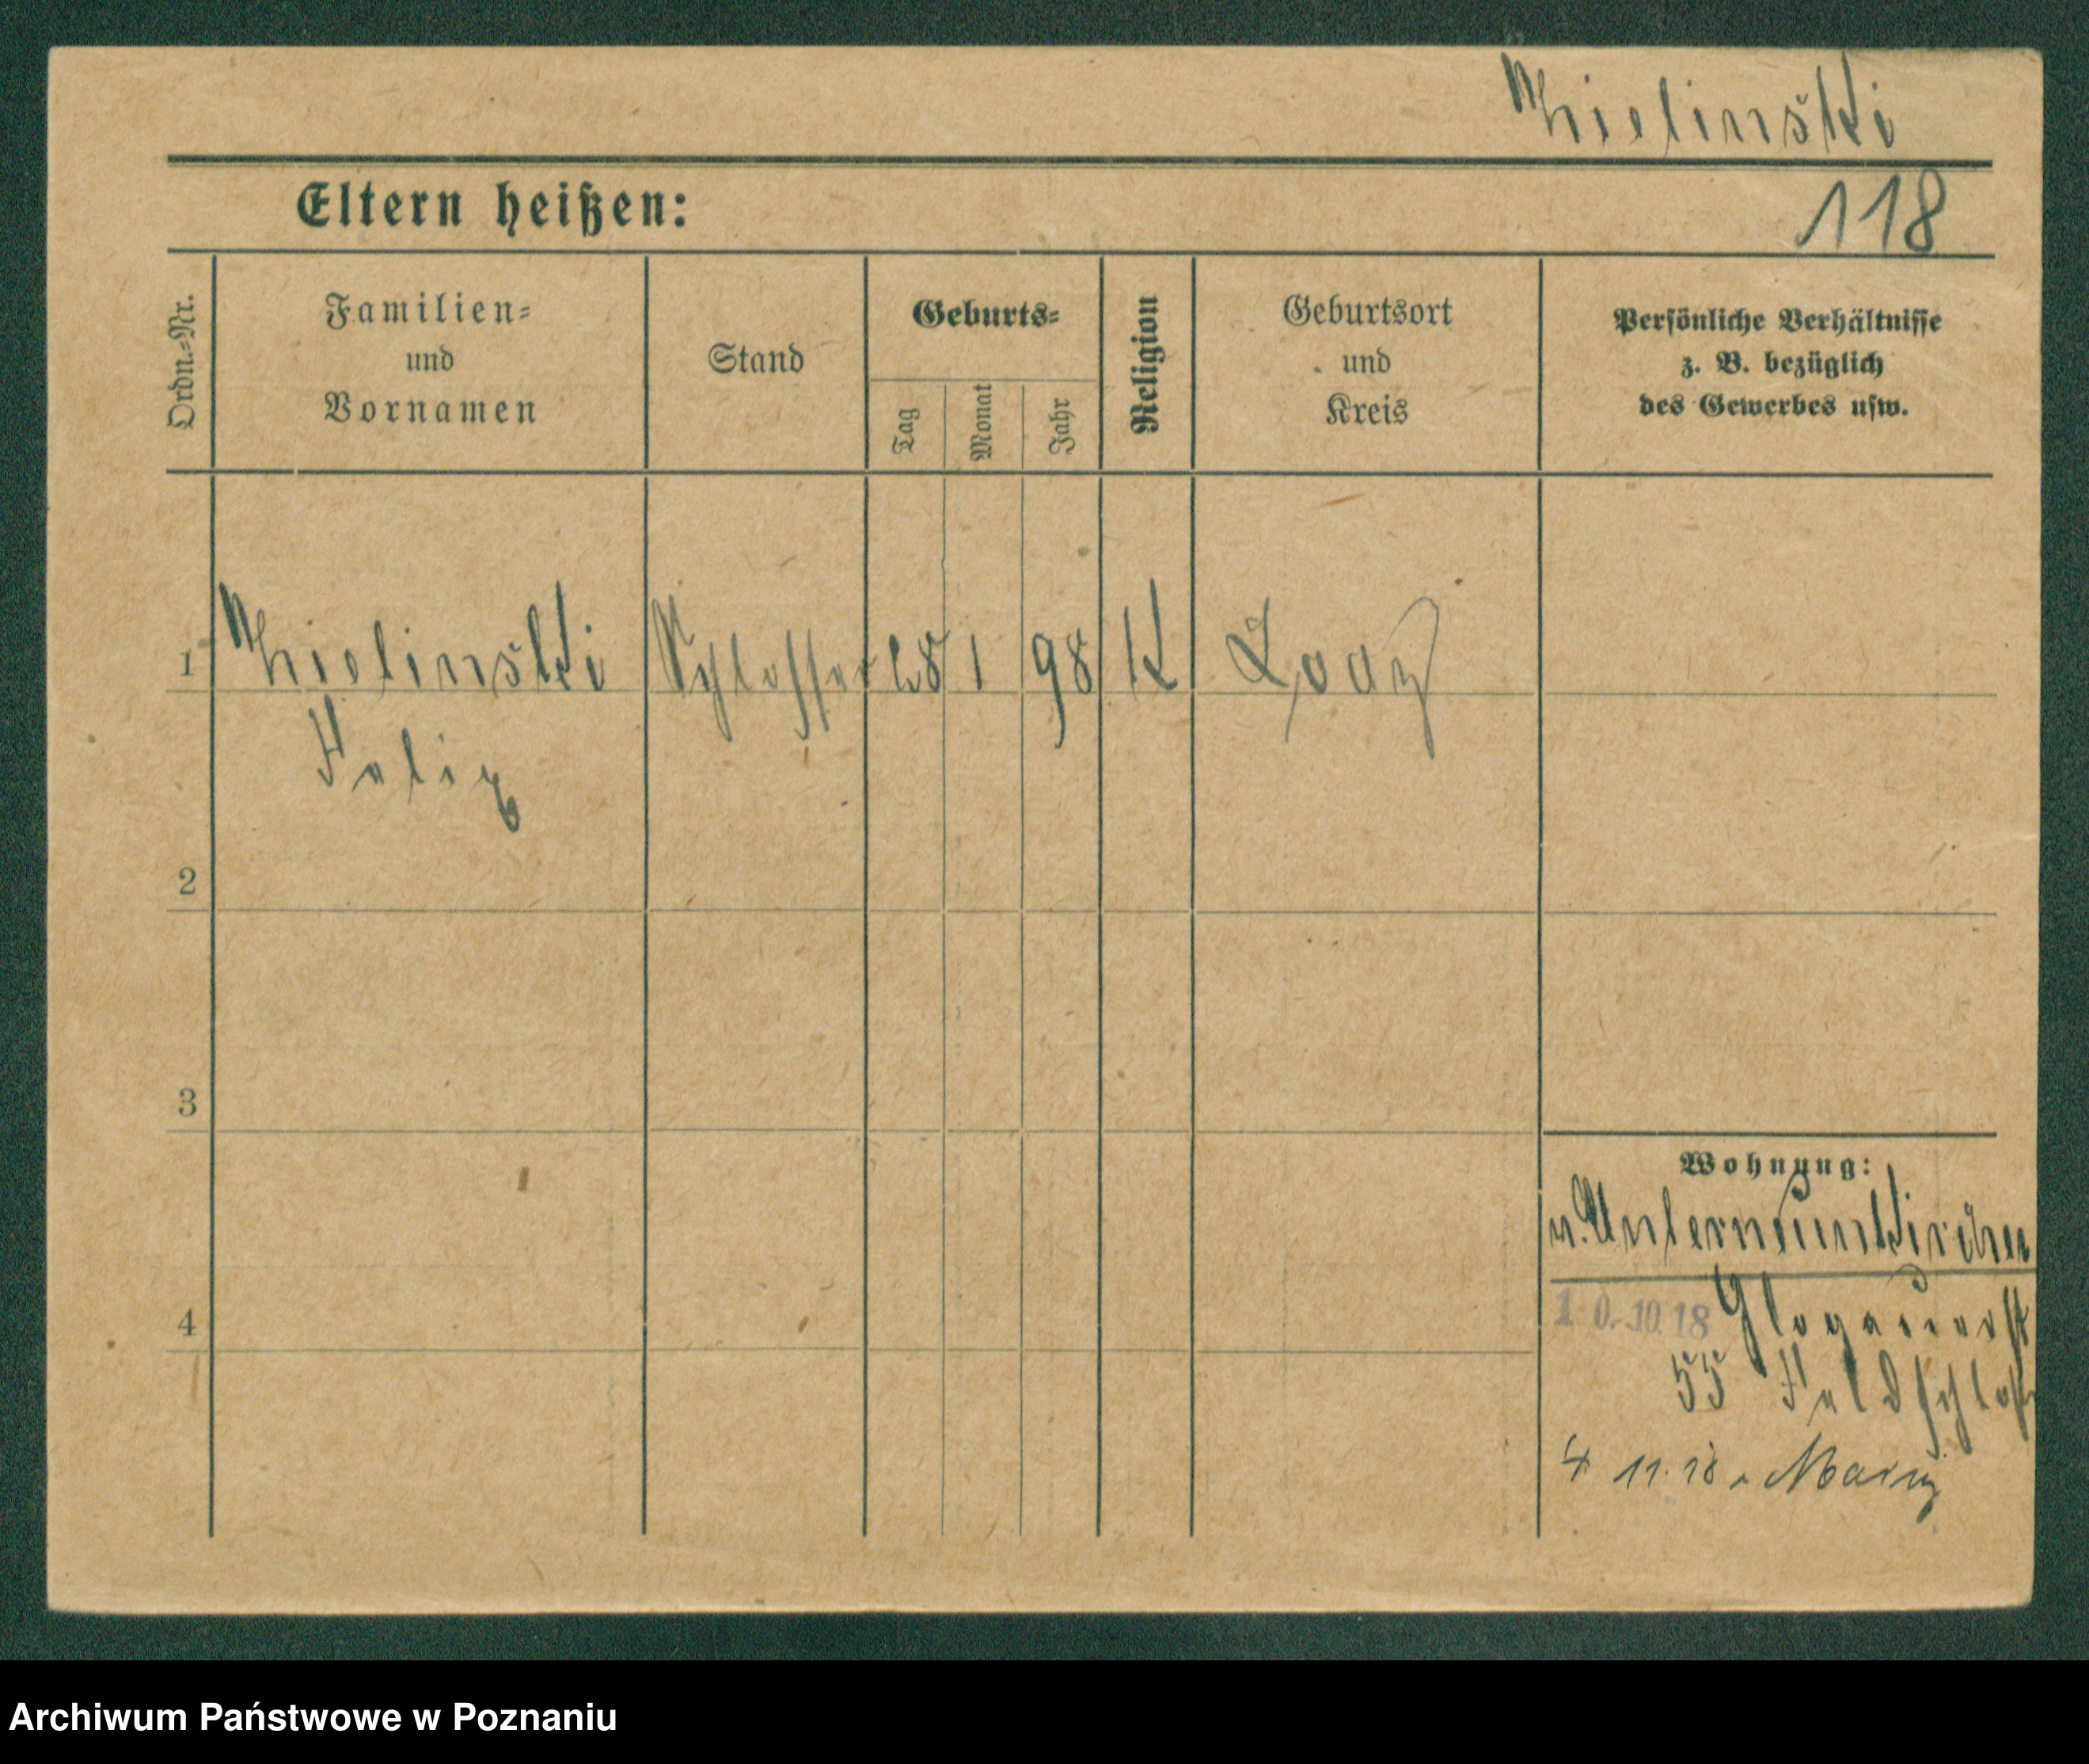 Zielinski
Eltern heißen:
118
Ordn.-Nr.
Familien-
und
Vornamen
Stand
Geburts-
Tag
Monat
Jahr
Religion
Geburtsort
und
Kreis
Persönliche Verhältnisse
z. B. bezüglich
des Gewerbes usw.
1 Zielinski Schlosser 28 1 98 K Lodz
Felix
2
3
Wohnung:
v. Unterneunkirchen
10.10.18 Glogauerst
4
55 Feldschloß
4 11.18 n Mainz
Archiwum Państwowe w Poznaniu